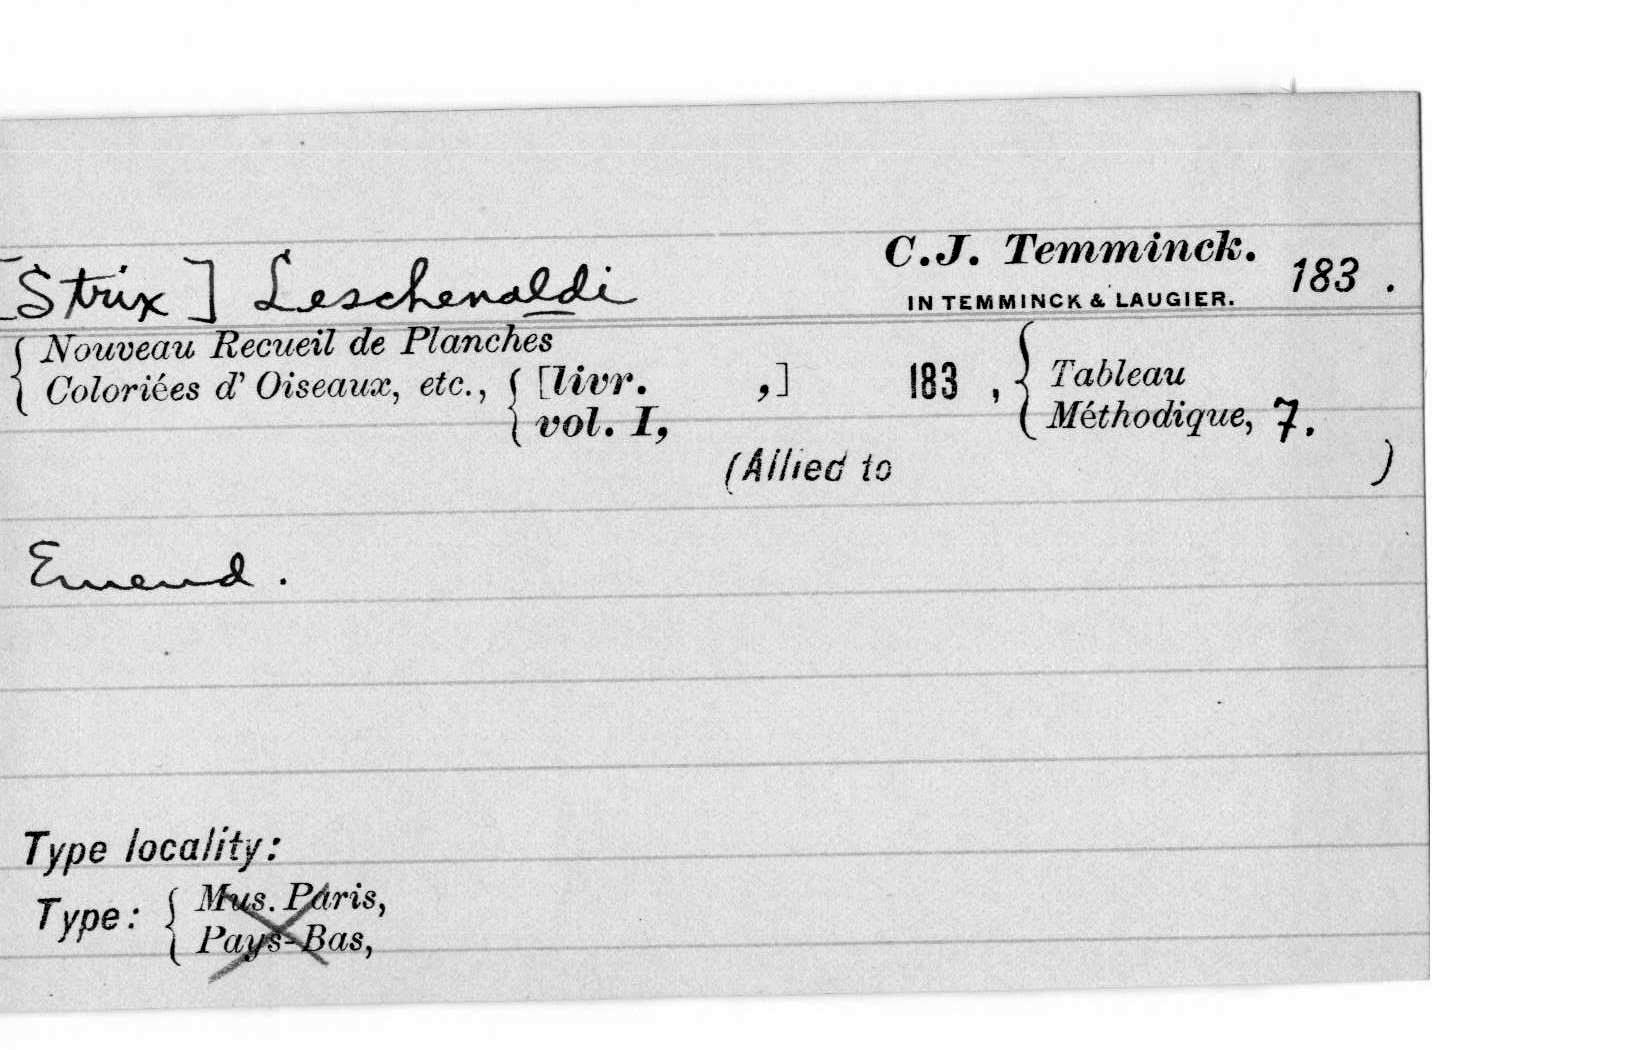 [Strix] Leschenaldi C.J. Temminck. 183 .
IN TEMMINCK & LAUGIER.
Nouveau Recueil de Planches
Coloriées d' Oiseaux, etc., [livr. ,] 183 , Tableau
vol. I, Méthodique, 7.
(Allied to )
Emend.
Type locality:
Type: Mus. Paris,
Pays-Bas,